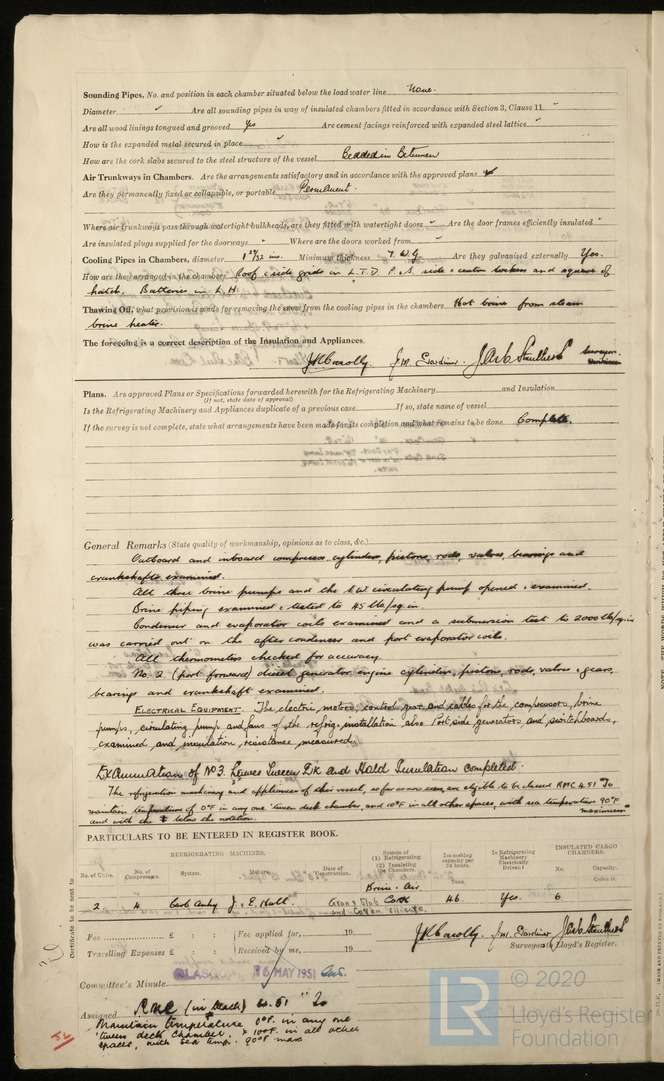 Sounding Pipes, No. and position in each chamber situated below the load water line None.
Diameter ✓ Are all sounding pipes in way of insulated chambers fitted in accordance with Section 3, Clause 11.
Are all wood linings tongued and grooved Yes Are cement facings reinforced with expanded steel lattice
How is the expanded metal secured in place
How are the cork slabs secured to the steel structure of the vessel Bedded in Bitumen
Air Trunkways in Chambers. Are the arrangements satisfactory and in accordance with the approved plans
Are they permanently fixed or collapsible, or portable Permanent.
Where air trunkways pass through watertight bulkheads, are they fitted with watertight doors Are the door frames efficiently insulated
Are insulated plugs supplied for the doorways Where are the doors worked from
Cooling Pipes in Chambers, diameter 1 27/32 ins. Minimum thickness 7 W.G Are they galvanised externally Yes.
How are they arranged in the chambers Roof & side grids in L.T.D. P. & S. side & centre lockers and square of
hatch. Batteries in L.H.
Thawing Off, what provision is made for removing the snow from the cooling pipes in the chambers Hot brine from steam
brine heater.
The foregoing is a correct description of the Insulation and Appliances.
J.M. Gardiner Surveyor
Plans. Are approved Plans or Specifications forwarded herewith for the Refrigerating Machinery and Insulation
(If not, state date of approval)
Is the Refrigerating Machinery and Appliances duplicate of a previous case If so, state name of vessel
If the survey is not complete, state what arrangements have been made for its completion and what remains to be done Complete.
General Remarks (State quality of workmanship, opinions as to class, &c.)
Outboard and inboard compressor cylinders, pistons, rods, valves, bearings and
crankshafts examined.
All three brine pumps and the S.W circulating pump opened & examined.
Brine piping examined & tested to 45 lbs/sq.in
Condenser and evaporator coils examined and a submersion test to 2000 lbs/sq.in
was carried out on the after condenser and port evaporator coils.
All thermometers checked for accuracy.
No. 2 (port forward) diesel generator engine cylinders, pistons, rods, valves & gears,
bearings and crankshaft examined.
ELECTRICAL EQUIPMENT. The electric motors, control gear and cables for the compressors, brine
pumps, circulating pump and fans of the refrig. installation also Port side generators, and switchboards,
examined and insulation resistance measured.
Examination of No 3. Lower Tween Dk and Hold Insulation completed.
The refrigeration machinery and appliances of this vessel, so far as now seen, are eligible to be classed RMC 4.51 To
maintain temperature of 0°F in any one 'tween deck chamber, and 10°F in all other spaces, with sea temperature 90°F
maximum
and with the below the notation.
PARTICULARS TO BE ENTERED IN REGISTER BOOK.
REFRIGERATING MACHINES.
System of
(1) Refrigerating
(2) Insulating
the Chambers.
Ice-making
capacity per
24 hours.
Is Refrigerating
Machinery
Electrically
Driven?
INSULATED CARGO
CHAMBERS.
No. of Units. No. of Compressors. System. Makers. Date of Construction. Tons. No. Capacity. Cubic ft.
Brine & Air.
2 4 Carb Anhy J. & E. Hall. Gran & Slab Cork 46. Yes. 6
Certificate to be sent to
Fee £ : : Fee applied for, 19
Travelling Expenses £ : : Received by me, 19
J.M. Gardiner
Surveyors to Lloyd's Register.
Committee's Minute
16 MAY 1951
Assigned RMC (in black) 4.51 "To
Maintain temperature 0°F. in any one
'tween deck chamber, & 10°F. in all other
spaces, with sea temp. 90°F max
© 2020
LR
Lloyd's Register
Foundation